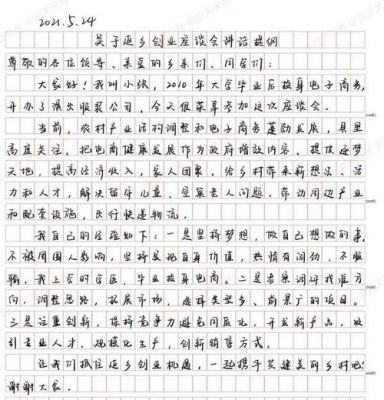 2021.5.24
关于返乡创业座谈会讲话提纲
尊敬的各位领导、亲爱的乡亲们、同学们:
大家好!我叫小张,2010年大学毕业后投身电子商务,
开办了演出服装公司,今天很荣幸参加这次座谈会。
当前,农村产业结构调整和电子商务蓬勃发展,县里
高度关注,把电商健康发展作为政府增效内容、提供逐梦
天地,提高经济收入,家人团聚,给乡村带来新想法、活
力和人才,解决留守儿童、空巢老人问题,带动周边产业
和配套设施,践行快递物流。
我自己的经验如下:一是坚持梦想,做自己想做的事,
不被周围人影响,坚持实现自身价值,热情有闯劲,不服
输,我上学时学医,毕业投身电商。二是考察调研找准方
向,调整思路,拓展市场,选择类型多、前景广的项目。
三是注重创新,保持竞争力避免同质化,开发新产品,吸
引专业人才,规模化生产,创新销售方式。
让我们抓住返乡创业机遇,一起携手共建美丽乡村吧!
谢谢大家。